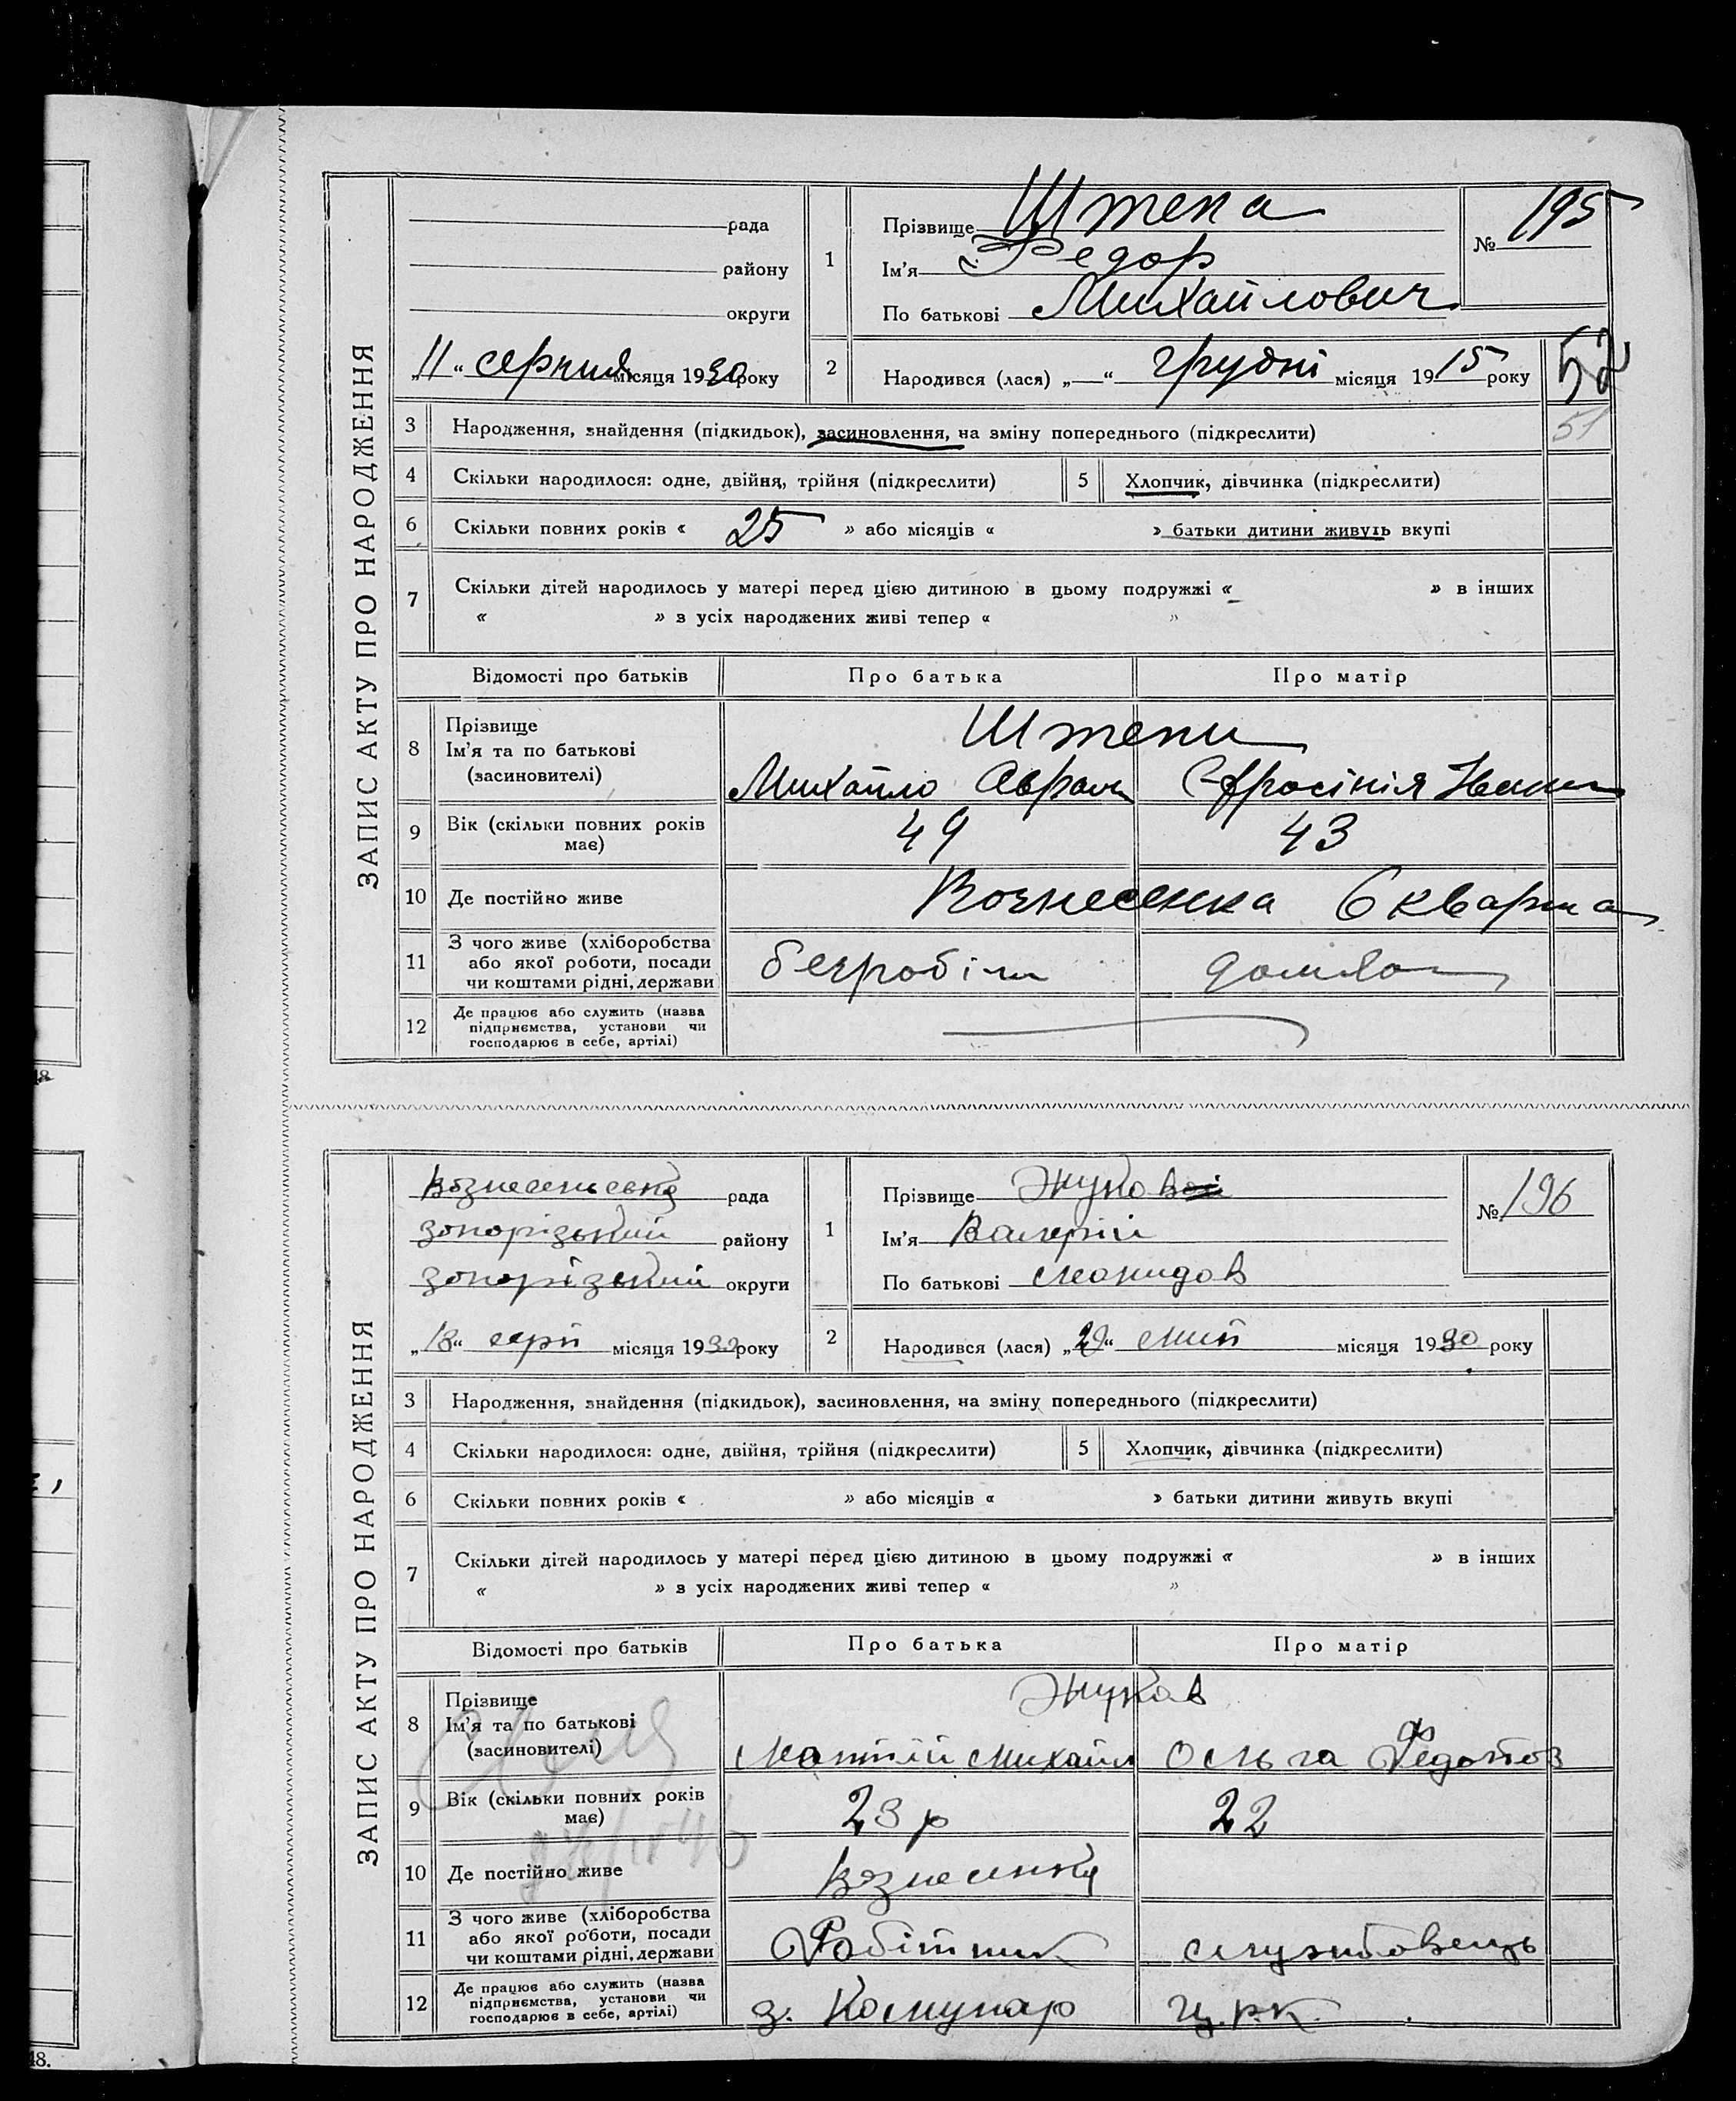 ЗАПИС АКТУ ПРО НАРОДЖЕННЯ
рада
району
округи
„11“ серпня місяця 1930 року
1
Прізвище Штепа
Ім'я Федор
По батькові Михайлович
№ 195
2
Народився (лася) „—“ грудні місяця 1915 року
52
51
3 Народження, знайдення (підкидьок), засиновлення, на зміну попереднього (підкреслити)
4 Скільки народилося: одне, двійня, трійня (підкреслити)
5 Хлопчик, дівчинка (підкреслити)
6 Скільки повних років « 25 » або місяців « » батьки дитини живуть вкупі
7 Скільки дітей народилось у матері перед цією дитиною в цьому подружжі « » в інших
« » з усіх народжених живі тепер « »
Відомості про батьків Про батька Про матір
8 Прізвище
Ім'я та по батькові
(засиновителі)
Штепи
Михайло Аврам Єфросінія Іван
9 Вік (скільки повних років має) 49 43
10 Де постійно живе Вознесенка 6 квартал
11 З чого живе (хліборобства
або якої роботи, посади
чи коштами рідні, держави
безробітн домгос
12 Де працює або служить (назва
підприємства, установи чи
господарює в себе, артілі)
ЗАПИС АКТУ ПРО НАРОДЖЕННЯ
вознесенська рада
запорізький району
запорізький округи
„13“ серп місяця 1930 року
1
Прізвище Жуков
Ім'я Валерій
По батькові
№ 196
2
Народився (лася) „29“ лип місяця 1930 року
3 Народження, знайдення (підкидьок), засиновлення, на зміну попереднього (підкреслити)
4 Скільки народилося: одне, двійня, трійня (підкреслити)
5 Хлопчик, дівчинка (підкреслити)
6 Скільки повних років « » або місяців « » батьки дитини живуть вкупі
7 Скільки дітей народилось у матері перед цією дитиною в цьому подружжі « » в інших
« » з усіх народжених живі тепер « »
Відомості про батьків Про батька Про матір
8 Прізвище
Ім'я та по батькові
(засиновителі)
Жуков
Михайл Ольга Федотов
9 Вік (скільки повних років має) 23 р 22
10 Де постійно живе Вознесенка
11 З чого живе (хліборобства
або якої роботи, посади
чи коштами рідні, держави
Робітник службовець
12 Де працює або служить (назва
підприємства, установи чи
господарює в себе, артілі)
з. Комунар ц.р.к.
48.